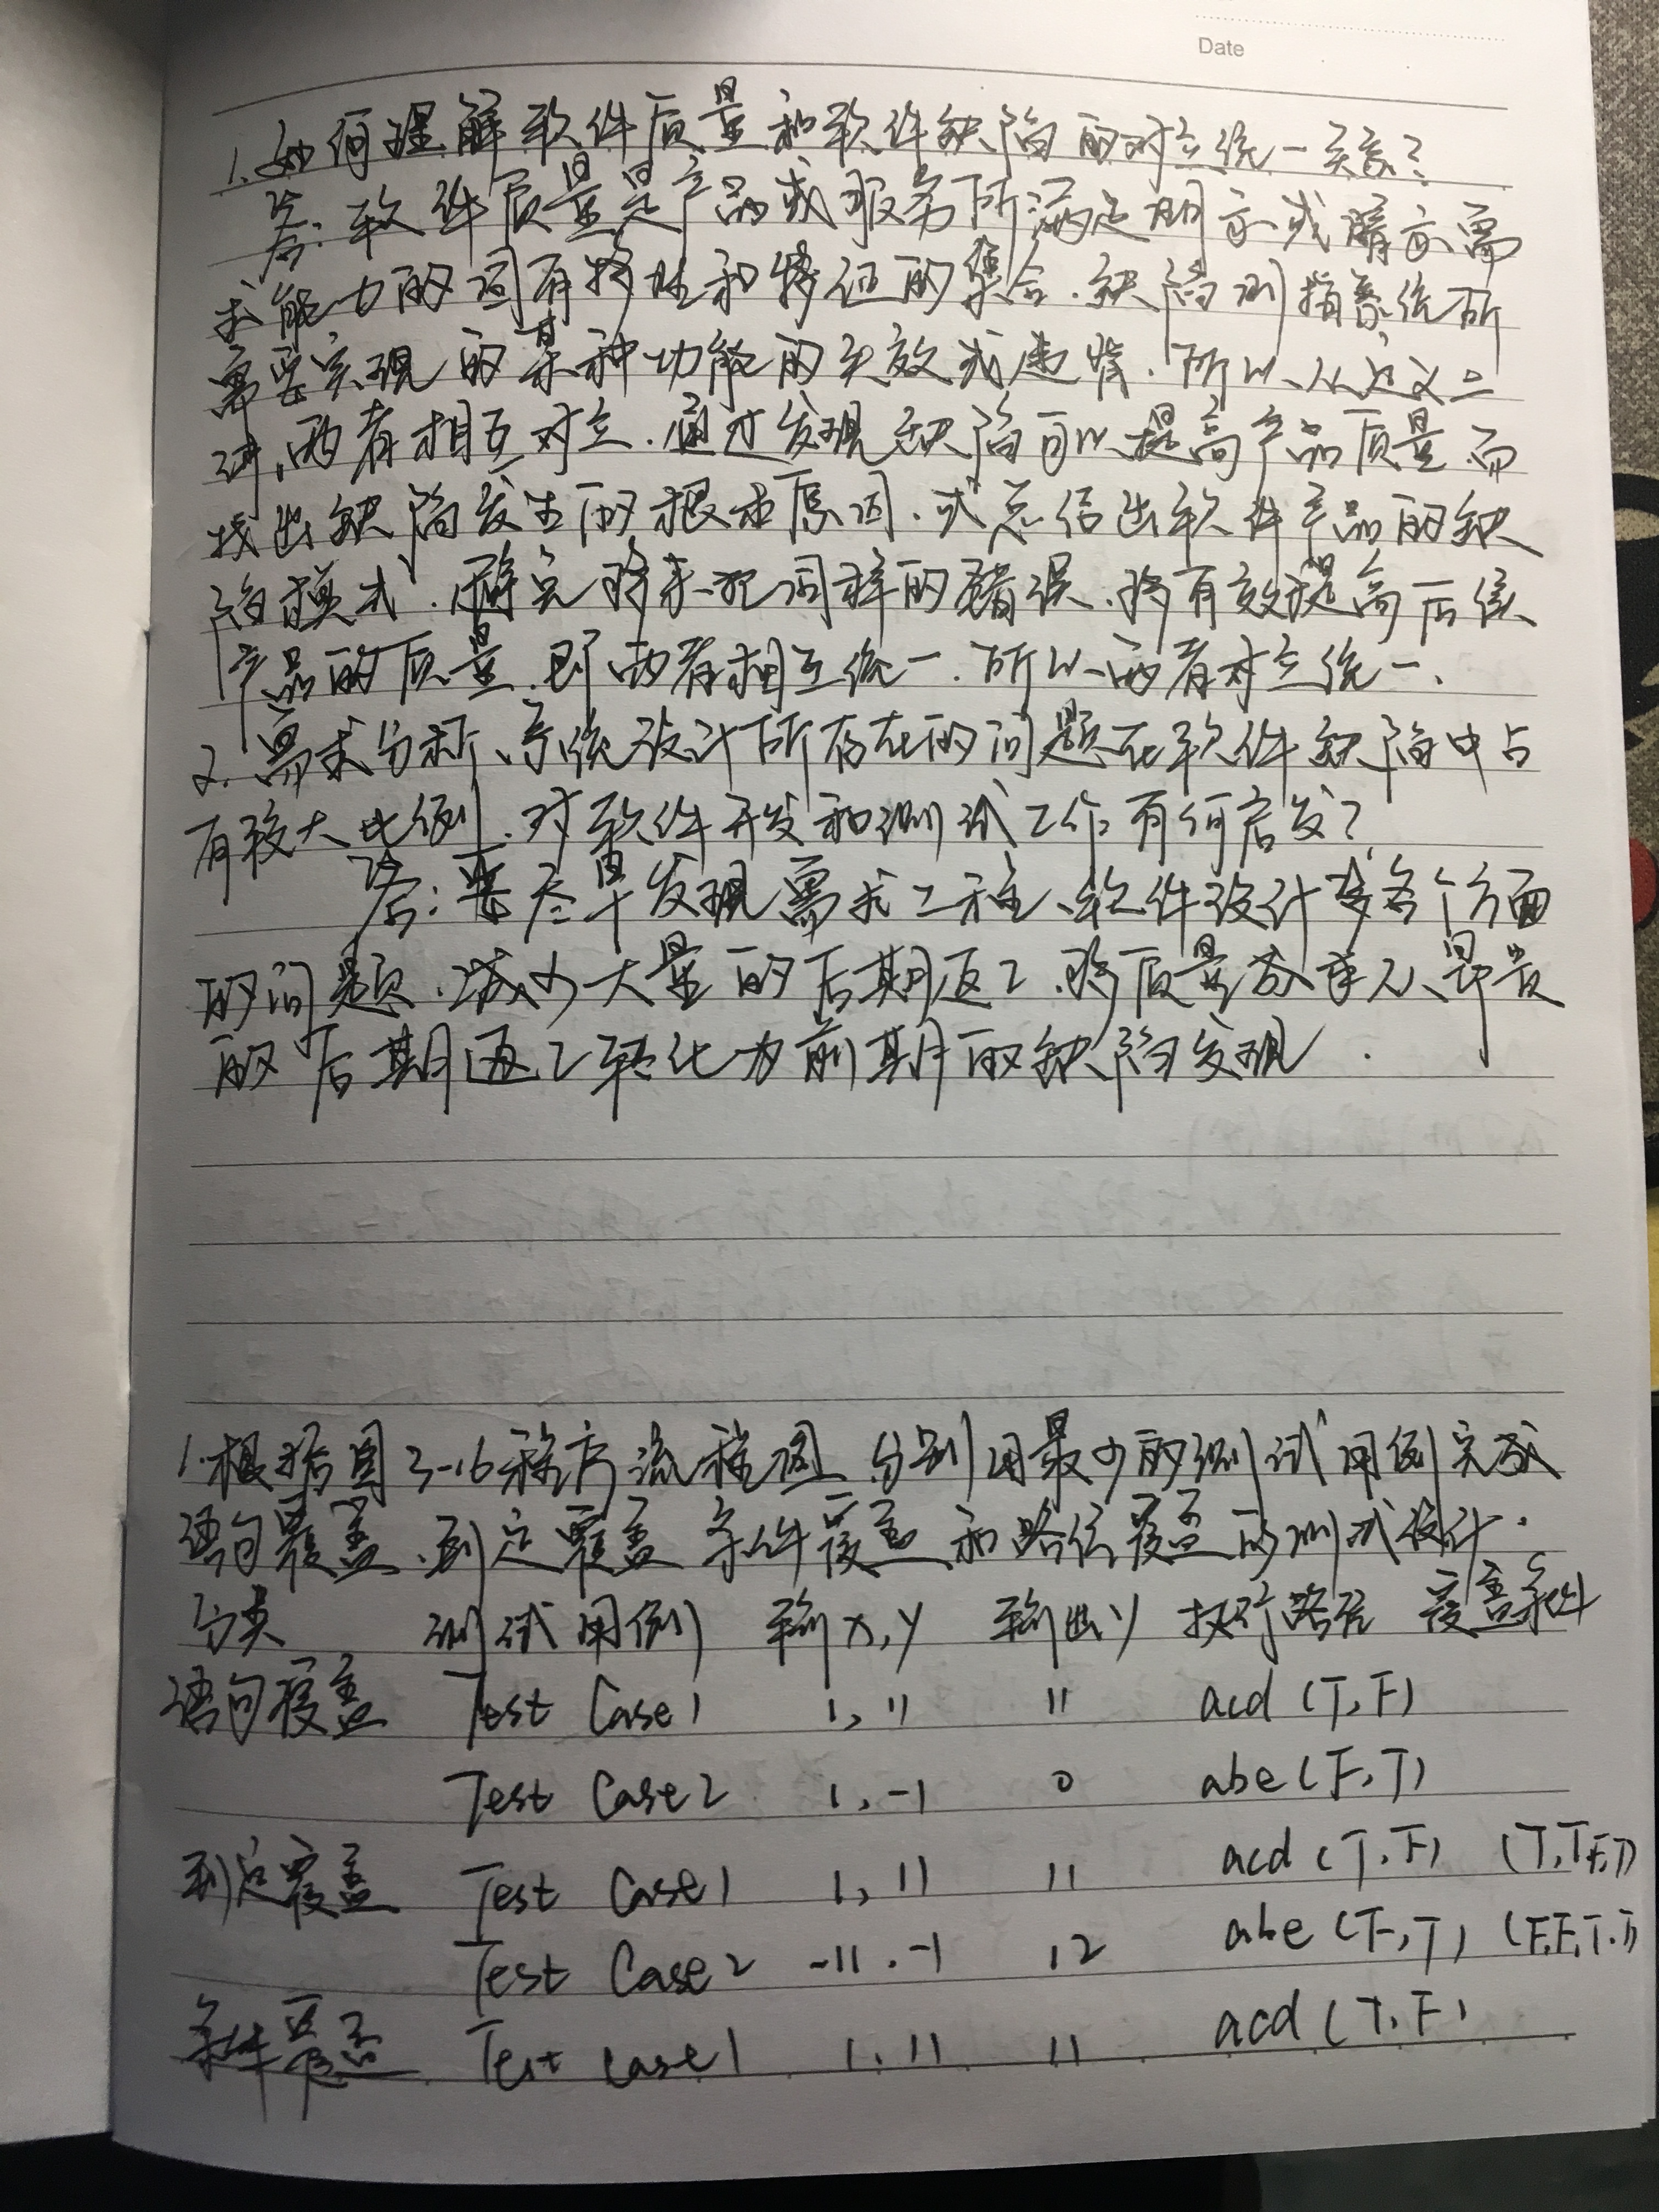 Date
1.如何理解软件质量和软件缺陷的对立统一关系?
答:软件质量是产品或服务所满足明示或暗示需
求能力的固有特性和特征的集合.缺陷则指系统所
需要实现的某种功能的失效或违背.所以、从定义上
讲,两者相互对立.通过发现缺陷可以提高产品质量.而
找出缺陷发生的根本原因.或总结出软件产品的缺
陷模式.避免将来犯同样的错误.将有效提高后续
产品的质量.即两者相互统一.所以、两者对立统一.
2.需求分析、系统设计所存在的问题在软件缺陷中占
有较大比例.对软件开发和测试工作有何启发?
答:要尽早发现需求工程、软件设计等各个方面
的问题.减少大量的后期返工.将质量成本从昂贵
的后期返工转化为前期的缺陷发现.
1.根据图3-16程序流程图 分别用最少的测试用例完成
语句覆盖、判定覆盖 条件覆盖和路径覆盖的测试设计.
分类 测试用例 输x,y 输出y 执行路径 覆盖条件
语句覆盖 Test Case1 1,11 11 acd (T,F)
Test Case2 1,-1 0 abe(F,T)
判定覆盖 Test Case1 1,11 11 acd (T,F) (T,T,F,T)
Test Case2 -11.-1 12 abe (F,T) (F,F,T,T)
条件覆盖 Test case1 1,11 11 acd (T,F)